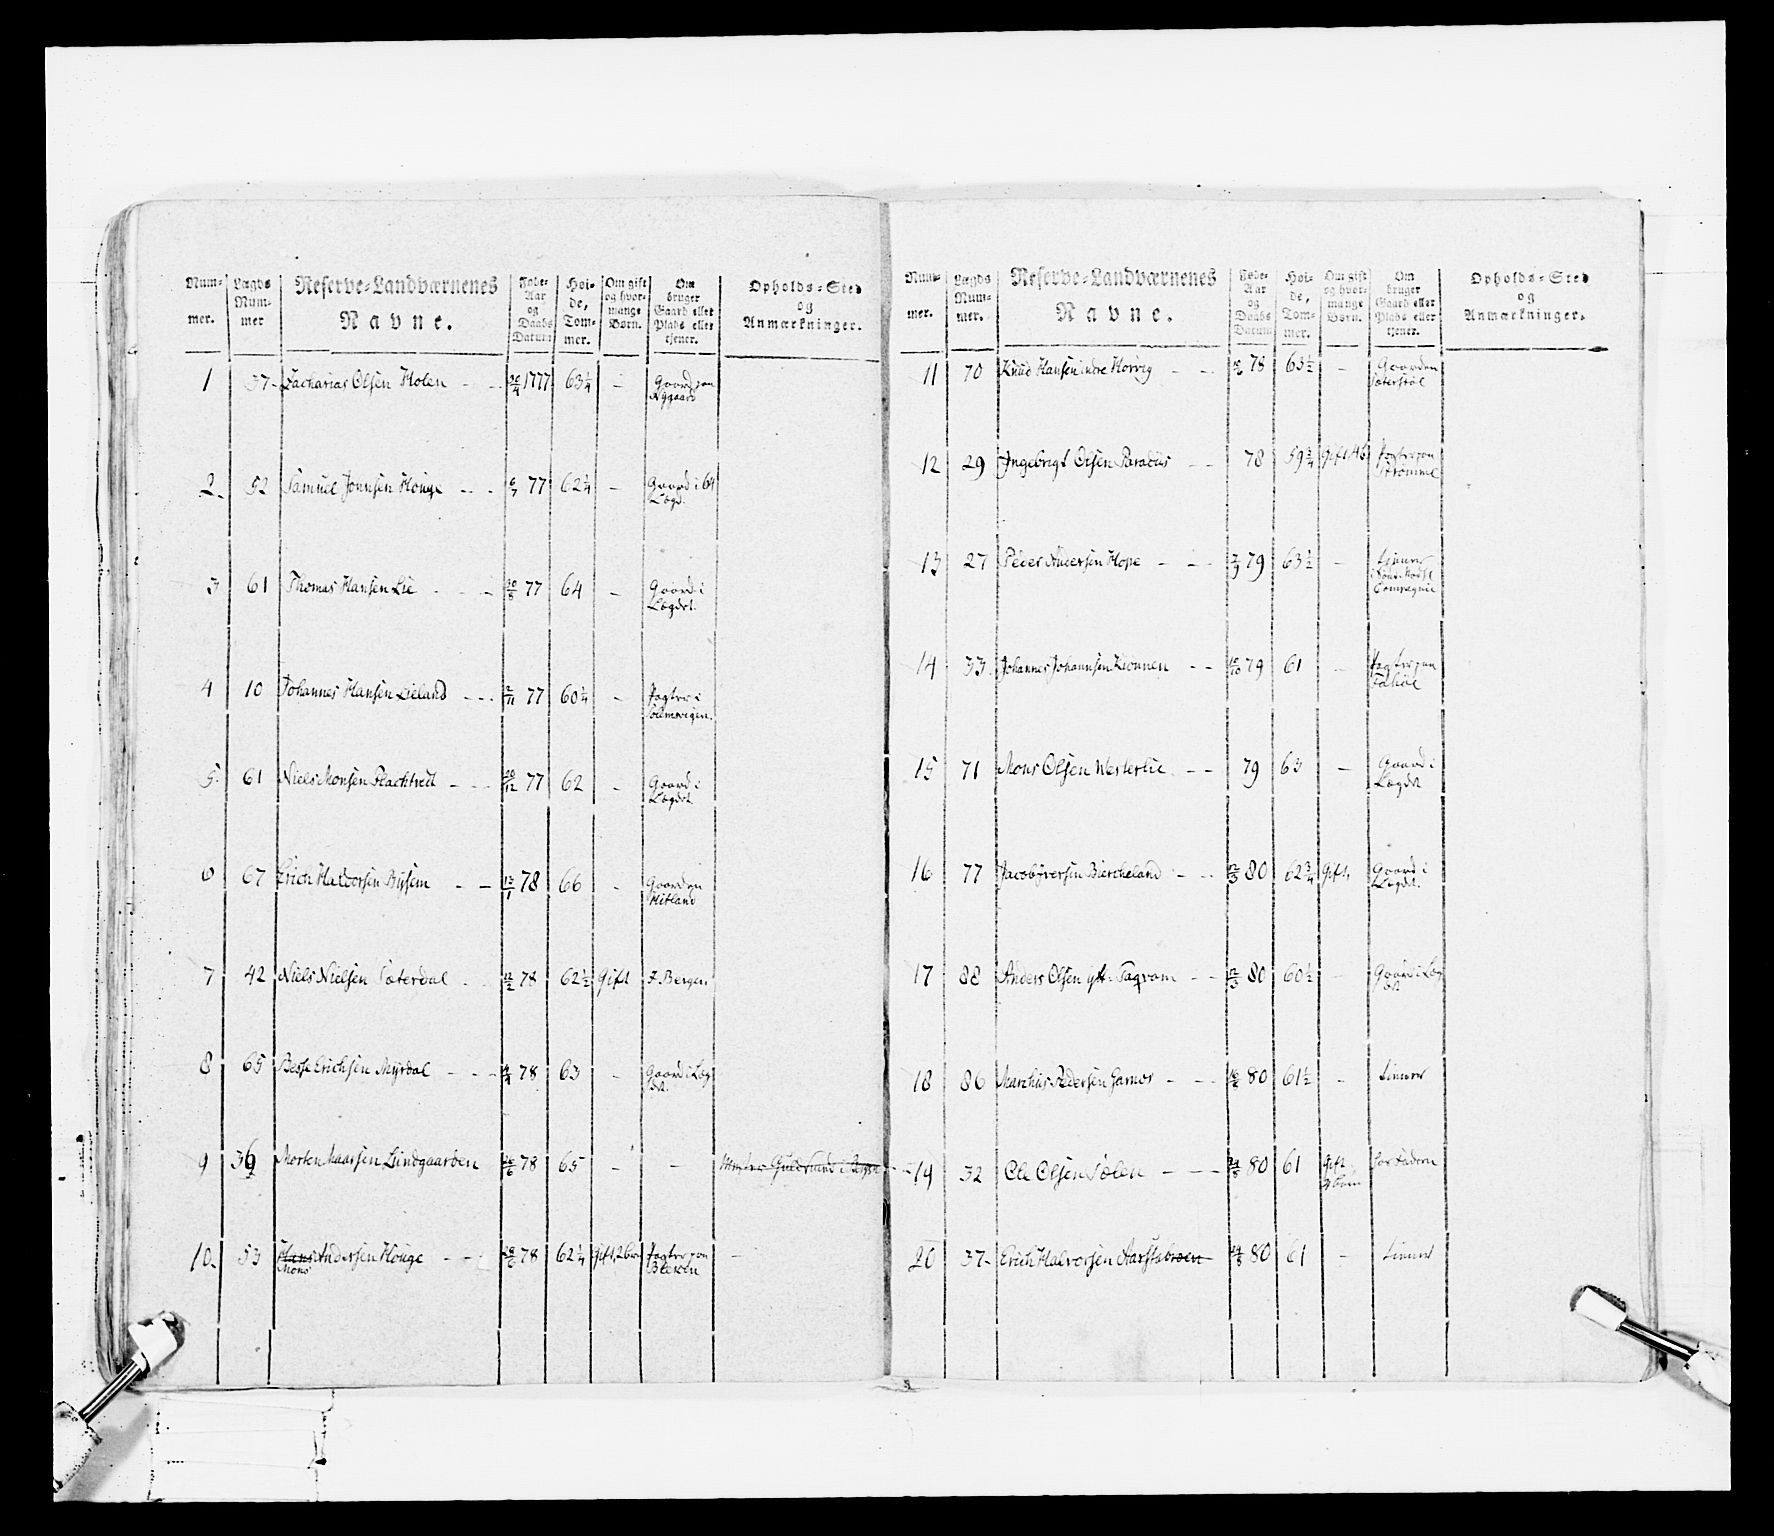 Num- mer. Lægds Num- mer Reserve-Landværnenes Navne. Føde- Aar og Daabs Datum Høi- de, Tom- mer. Om gift og hvor- mange Børn. Om bruger Gaard eller Plads eller tjener. Opholds-Sted og Anmærkninger.
1 37 Zacharias Olsen Holen 30/4 1777 63 1/4 - Gaard paa Nygaard
2 52 Samuel Jonnsen Houge 6/7 77 62 1/4 - Gaard i 64 Lægd.
3 61 Thomas Hansen Lie 30/8 77 64 - Gaard i Lægdet.
4 10 Johannes Hansen Lieland 2/11 77 60 1/4 - Pagter i
5 61 Niels Monsen Flachtveit 20/12 77 62 - Gaard i Lægdet
6 67 Erich Halvorsen 13/1 78 66 - Gaard paa Hitland
7 42 Niels Nielsen Sæterdal 12/2 78 62 1/2 Gift I Bergen
8 65 Erichsen Myrdal 78 63 - Gaard i Læg det.
9 36 Morten Lundgaarden 78 65 - -
10 53 Hans Mons Andersen Houge 78 62 1/4 Gift, 2 børn Pagter paa -
Num- mer. Lægds Num- mer. Reserve-Landværnenes Navne. Føde- Aar og Daabs Datum Høi- de, Tom- mer. Om gift og hvor- mange Børn. Om bruger Gaard eller Plads eller tjener. Opholds-Sted og Anmærkninger.
11 70 Knud Hansen indre 78 63 1/2 - Gaard paa Sæterstøl
12 29 Ingebrigt Olsen Paradiis 78 59 3/4 Gift Pagter paa Strømme
13 27 Peder Andersen Hope 79 63 1/2 - tjener
14 33 Johannes Johannsen 79 61 - Pagter paa
15 71 Mons Olsen Westerlie 79 63 - Gaard i Lægdet
16 77 Jacob Iversen Biercheland 80 62 3/4 Gift, Gaard i Lægdet.
17 88 Anders Olsen yt: 80 60 1/2 - Gaard i Læg det
18 86 Marchus Pedersen Garnes 80 61 1/2 - tiener
19 32 Ole Olsen 80 61 Gift hos Faderen
20 37 Erich Halvorsen 80 61 - tiener